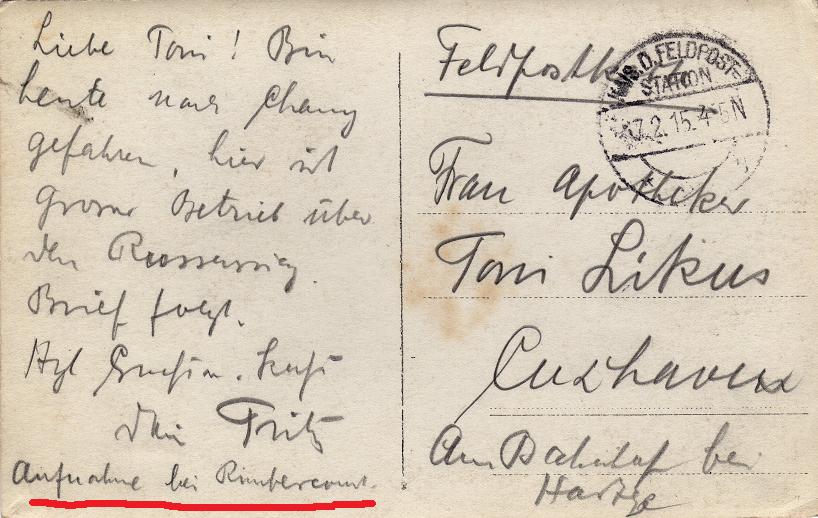 Liebe Toni! Bin
heute nach Chauny
gefahren, hier ist
grosser Betrieb über
den Russensieg.
Brief folgt.
Hzl Gruss u. Kuss
dein Fritz
Aufnahme bei Rimbercourt.
Feldpostkarte
K.NS.D.FELDPOST=
STATION
17.2.15.4-5N
Frau Apotheker
Toni Likus
Cuxhaven
Am Bahnhof bei